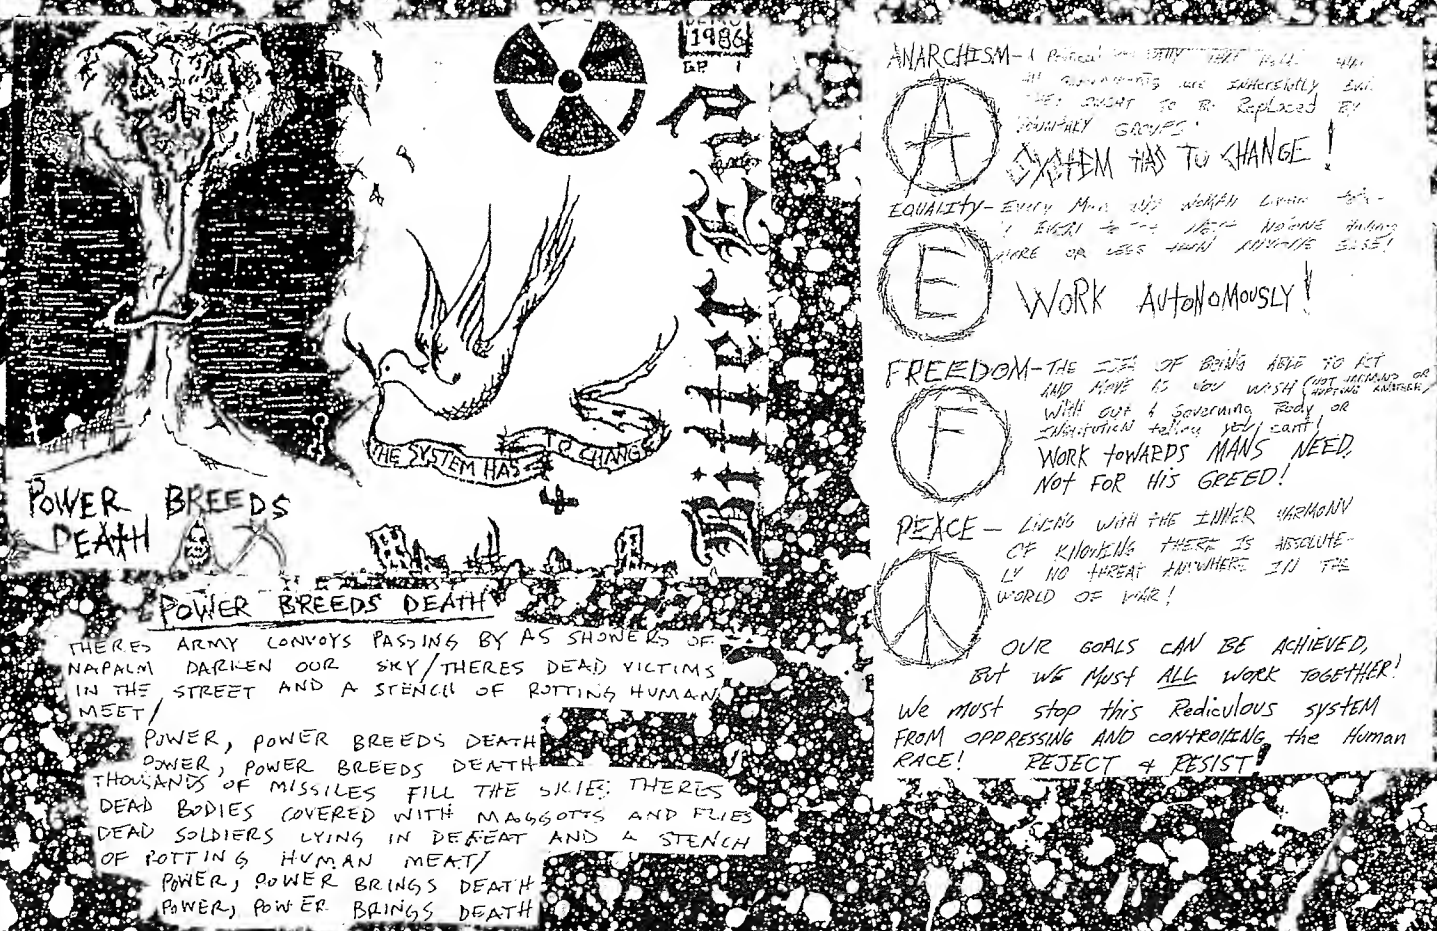 DEMO
1986
THE SYSTEM HAS TO CHANGE
POWER BREEDS
DEATH
POWER BREEDS DEATH
THERES ARMY CONVOYS PASSING BY AS SHOWERS OF
NAPALM DARKEN OUR SKY/THERES DEAD VICTIMS
IN THE STREET AND A STENCH OF ROTTING HUMAN
MEET/
POWER, POWER BREEDS DEATH
POWER, POWER BREEDS DEATH
THOUSANDS OF MISSILES FILL THE SKIES THERES
DEAD BODIES COVERED WITH MAGGOTTS AND FLIES
DEAD SOLDIERS LYING IN DEFEAT AND A STENCH
OF ROTTING HUMAN MEAT/
POWER, POWER BRINGS DEATH
POWER, POWER BRINGS DEATH
ANARCHISM- A THAT
governments are INHERENTLY
OUGHT TO BE Replaced BY
VOLUNTARY GROUPS.
A
SYSTEM HAS TO CHANGE!
EQUALITY- Every Man AND WOMAN
NOONE Having
MORE OR LESS THAN ANYONE ELSE!
E
WORK AUtONOMOUSLY!
FREEDOM- THE OF BEING ABLE TO ACT
AND MOVE AS YOU WISH (NOT HARMING OR
HURTING ANOTHER)
With out A Governing Body or
INSTITUTION telling you cant!
F
WORK tOWARDS MANS NEED,
NOT FOR HIS GREED!
PEACE- LIVING WITH THE INNER HARMONY
OF KNOWING THERE IS ABSOLUTE-
LY NO THREAT ANYWHERE IN THE
WORLD OF WAR!
OUR GOALS CAN BE ACHIEVED,
BUT WE MUSt ALL WORK TOGETHER!
We must stop this Rediculous sysTEM
FROM OPPRESSING AND CONTROLLING the Human
RACE! REJECT & RESIST!